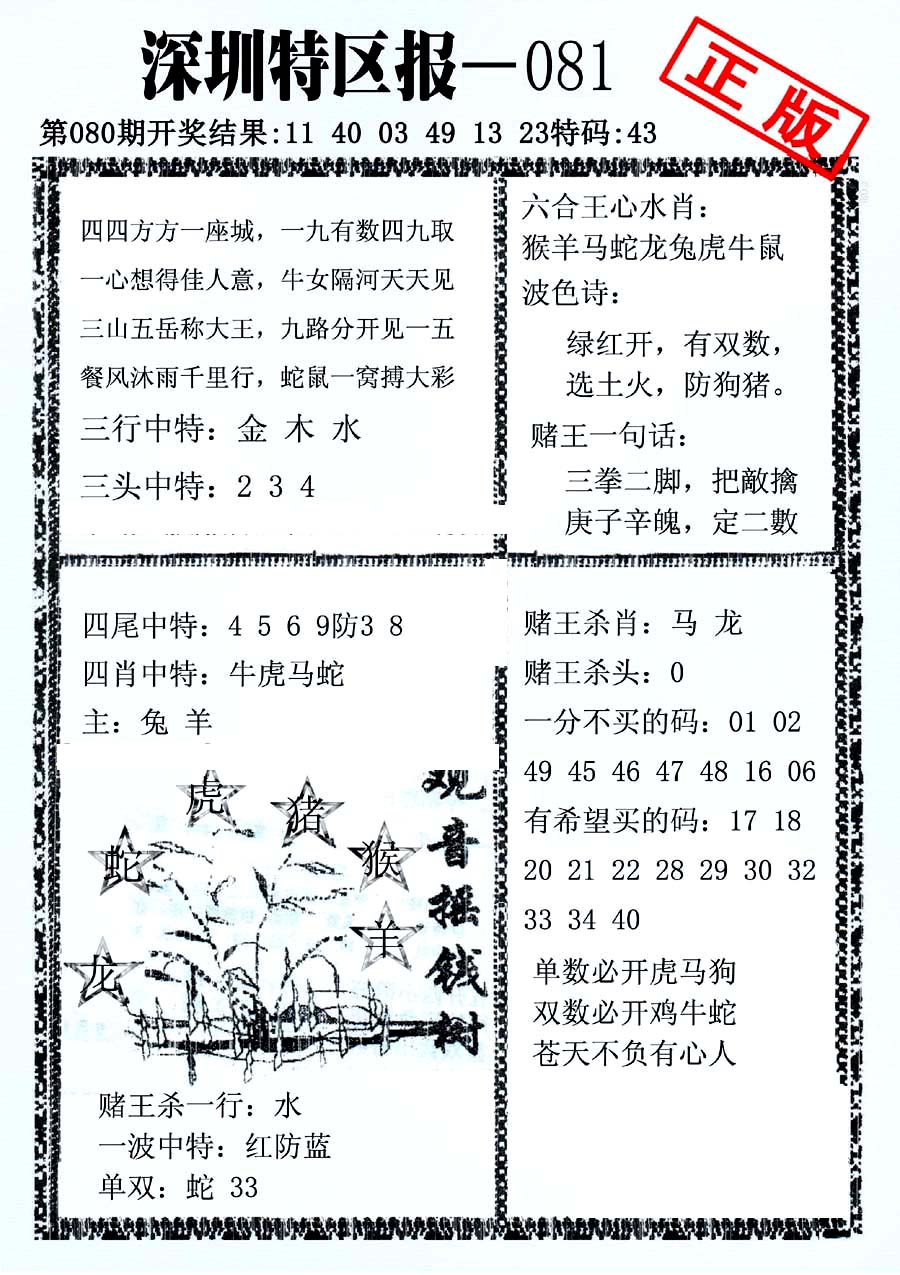 深圳特区报—081
正版
第080期开奖结果:11 40 03 49 13 23特码:43
四四方方一座城，一九有数四九取
一心想得佳人意，牛女隔河天天见
三山五岳称大王，九路分开见一五
餐风沐雨千里行，蛇鼠一窝搏大彩
三行中特：金 木 水
三头中特：2 3 4
六合王心水肖：
猴羊马蛇龙兔虎牛鼠
波色诗：
绿红开，有双数，
选土火，防狗猪。
赌王一句话：
三拳二脚，把敵擒
庚子辛魄，定二數
四尾中特：4 5 6 9防3 8
四肖中特：牛虎马蛇
主：兔 羊
观音摇钱树
虎
猪
蛇
猴
羊
龙
赌王杀一行：水
一波中特：红防蓝
单双：蛇 33
赌王杀肖：马 龙
赌王杀头：0
一分不买的码：01 02
49 45 46 47 48 16 06
有希望买的码：17 18
20 21 22 28 29 30 32
33 34 40
单数必开虎马狗
双数必开鸡牛蛇
苍天不负有心人